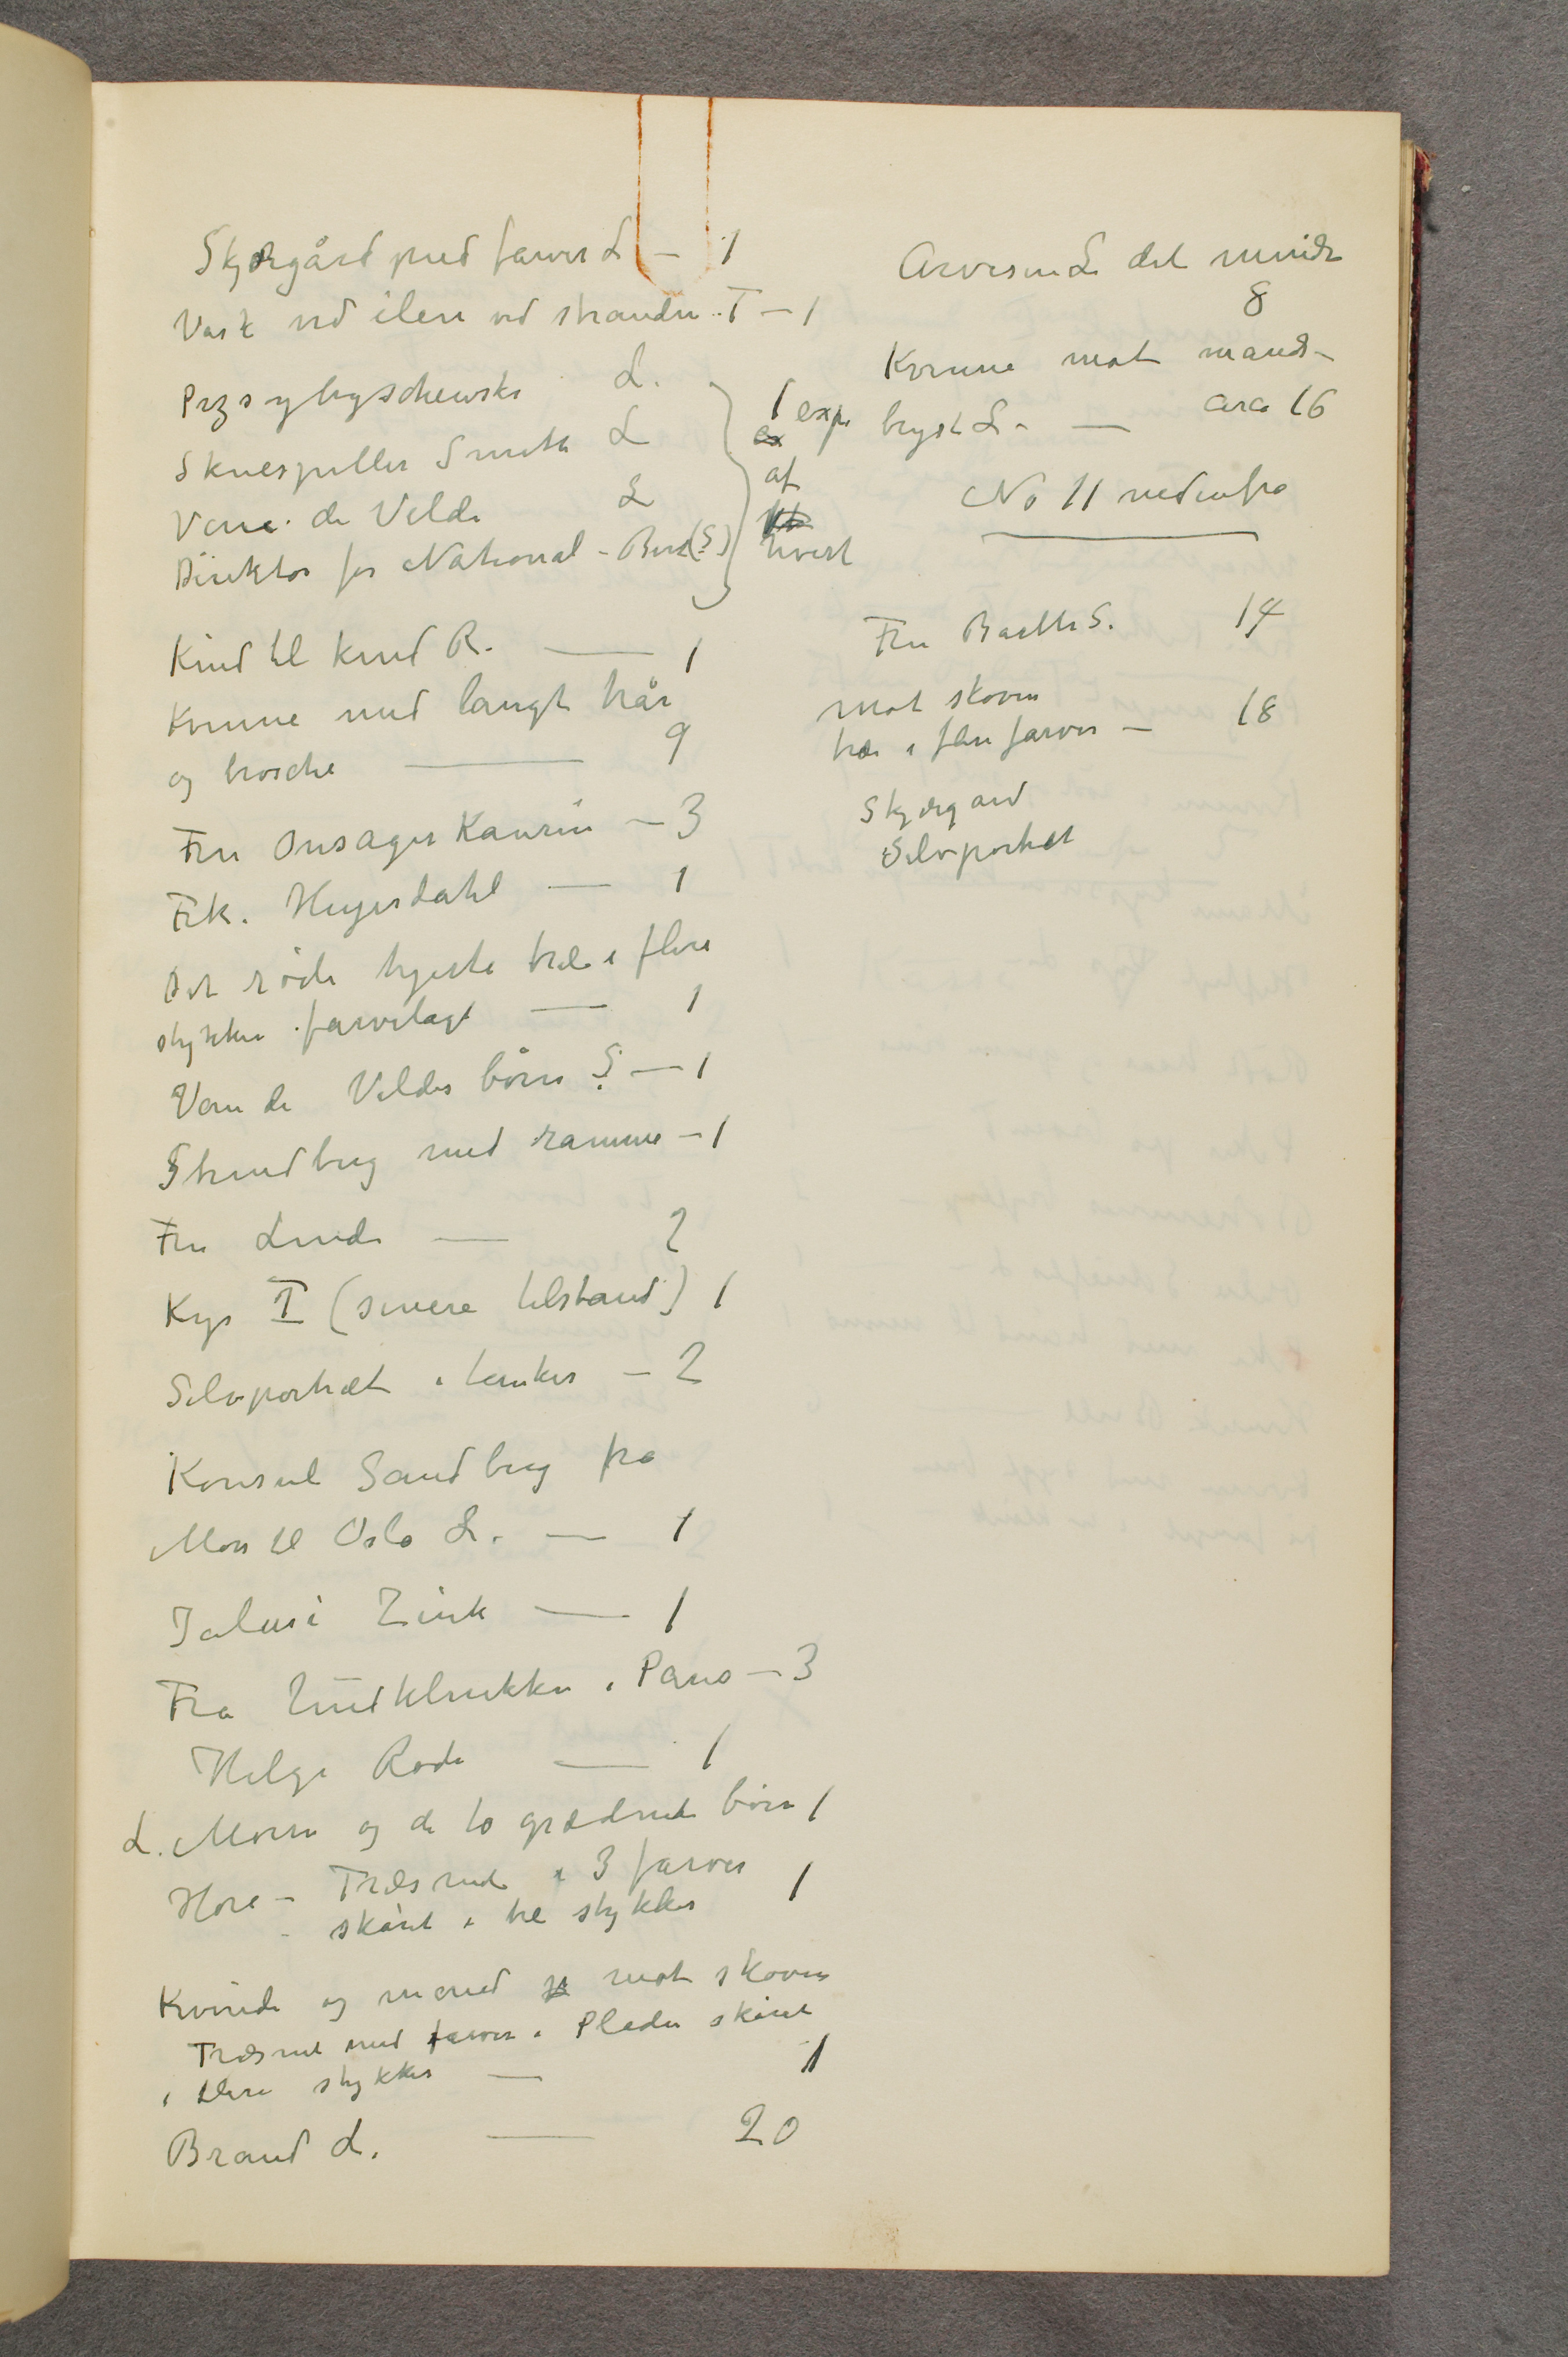 Skjærgård med farver L — 1
Vask ved ilen ved stranden T — 1
Przsybyschewski L.
Skuespiller Smith L
Vane de Velde L
Direktør for National-Bank(S)
1 expl
ex
af
hvert
Kind til kind R. — 1
Kvinne med langt hår
og brosche — 9
Fru Onsager Kaurin — 3
Frk. Heyerdahl — 1
Det røde hjerte træ i flere
stykker farvelagt — 1
Van de Veldes børn S — 1
Strindberg med ramme — 1
Fru Linde — 2
Kys I (senere tilstand) 1
Selvportræt i tanker — 2
Konsul Sandberg fra
Moss til Oslo L. — 1
Jalusi Zink — 1
Fra Lindklinikken i Paris — 3
Helge Rode — 1
L. Moren og de to grædende børn 1
Hore — Træsnit i 3 farver
skåret i tre stykker 1
Kvinde og mand mot skoven
Træsnit med farver i Pladen skåret
i flere stykker — 1
Brand L. — 20
Arvesund L det mindre
8
Kvinne mot mands-
bryst L. — circa 16
No 11 nedenfra
Fru Barth S. 14
mot skoven
træ i flere farver — 18
Skjærgard
Selvportræt